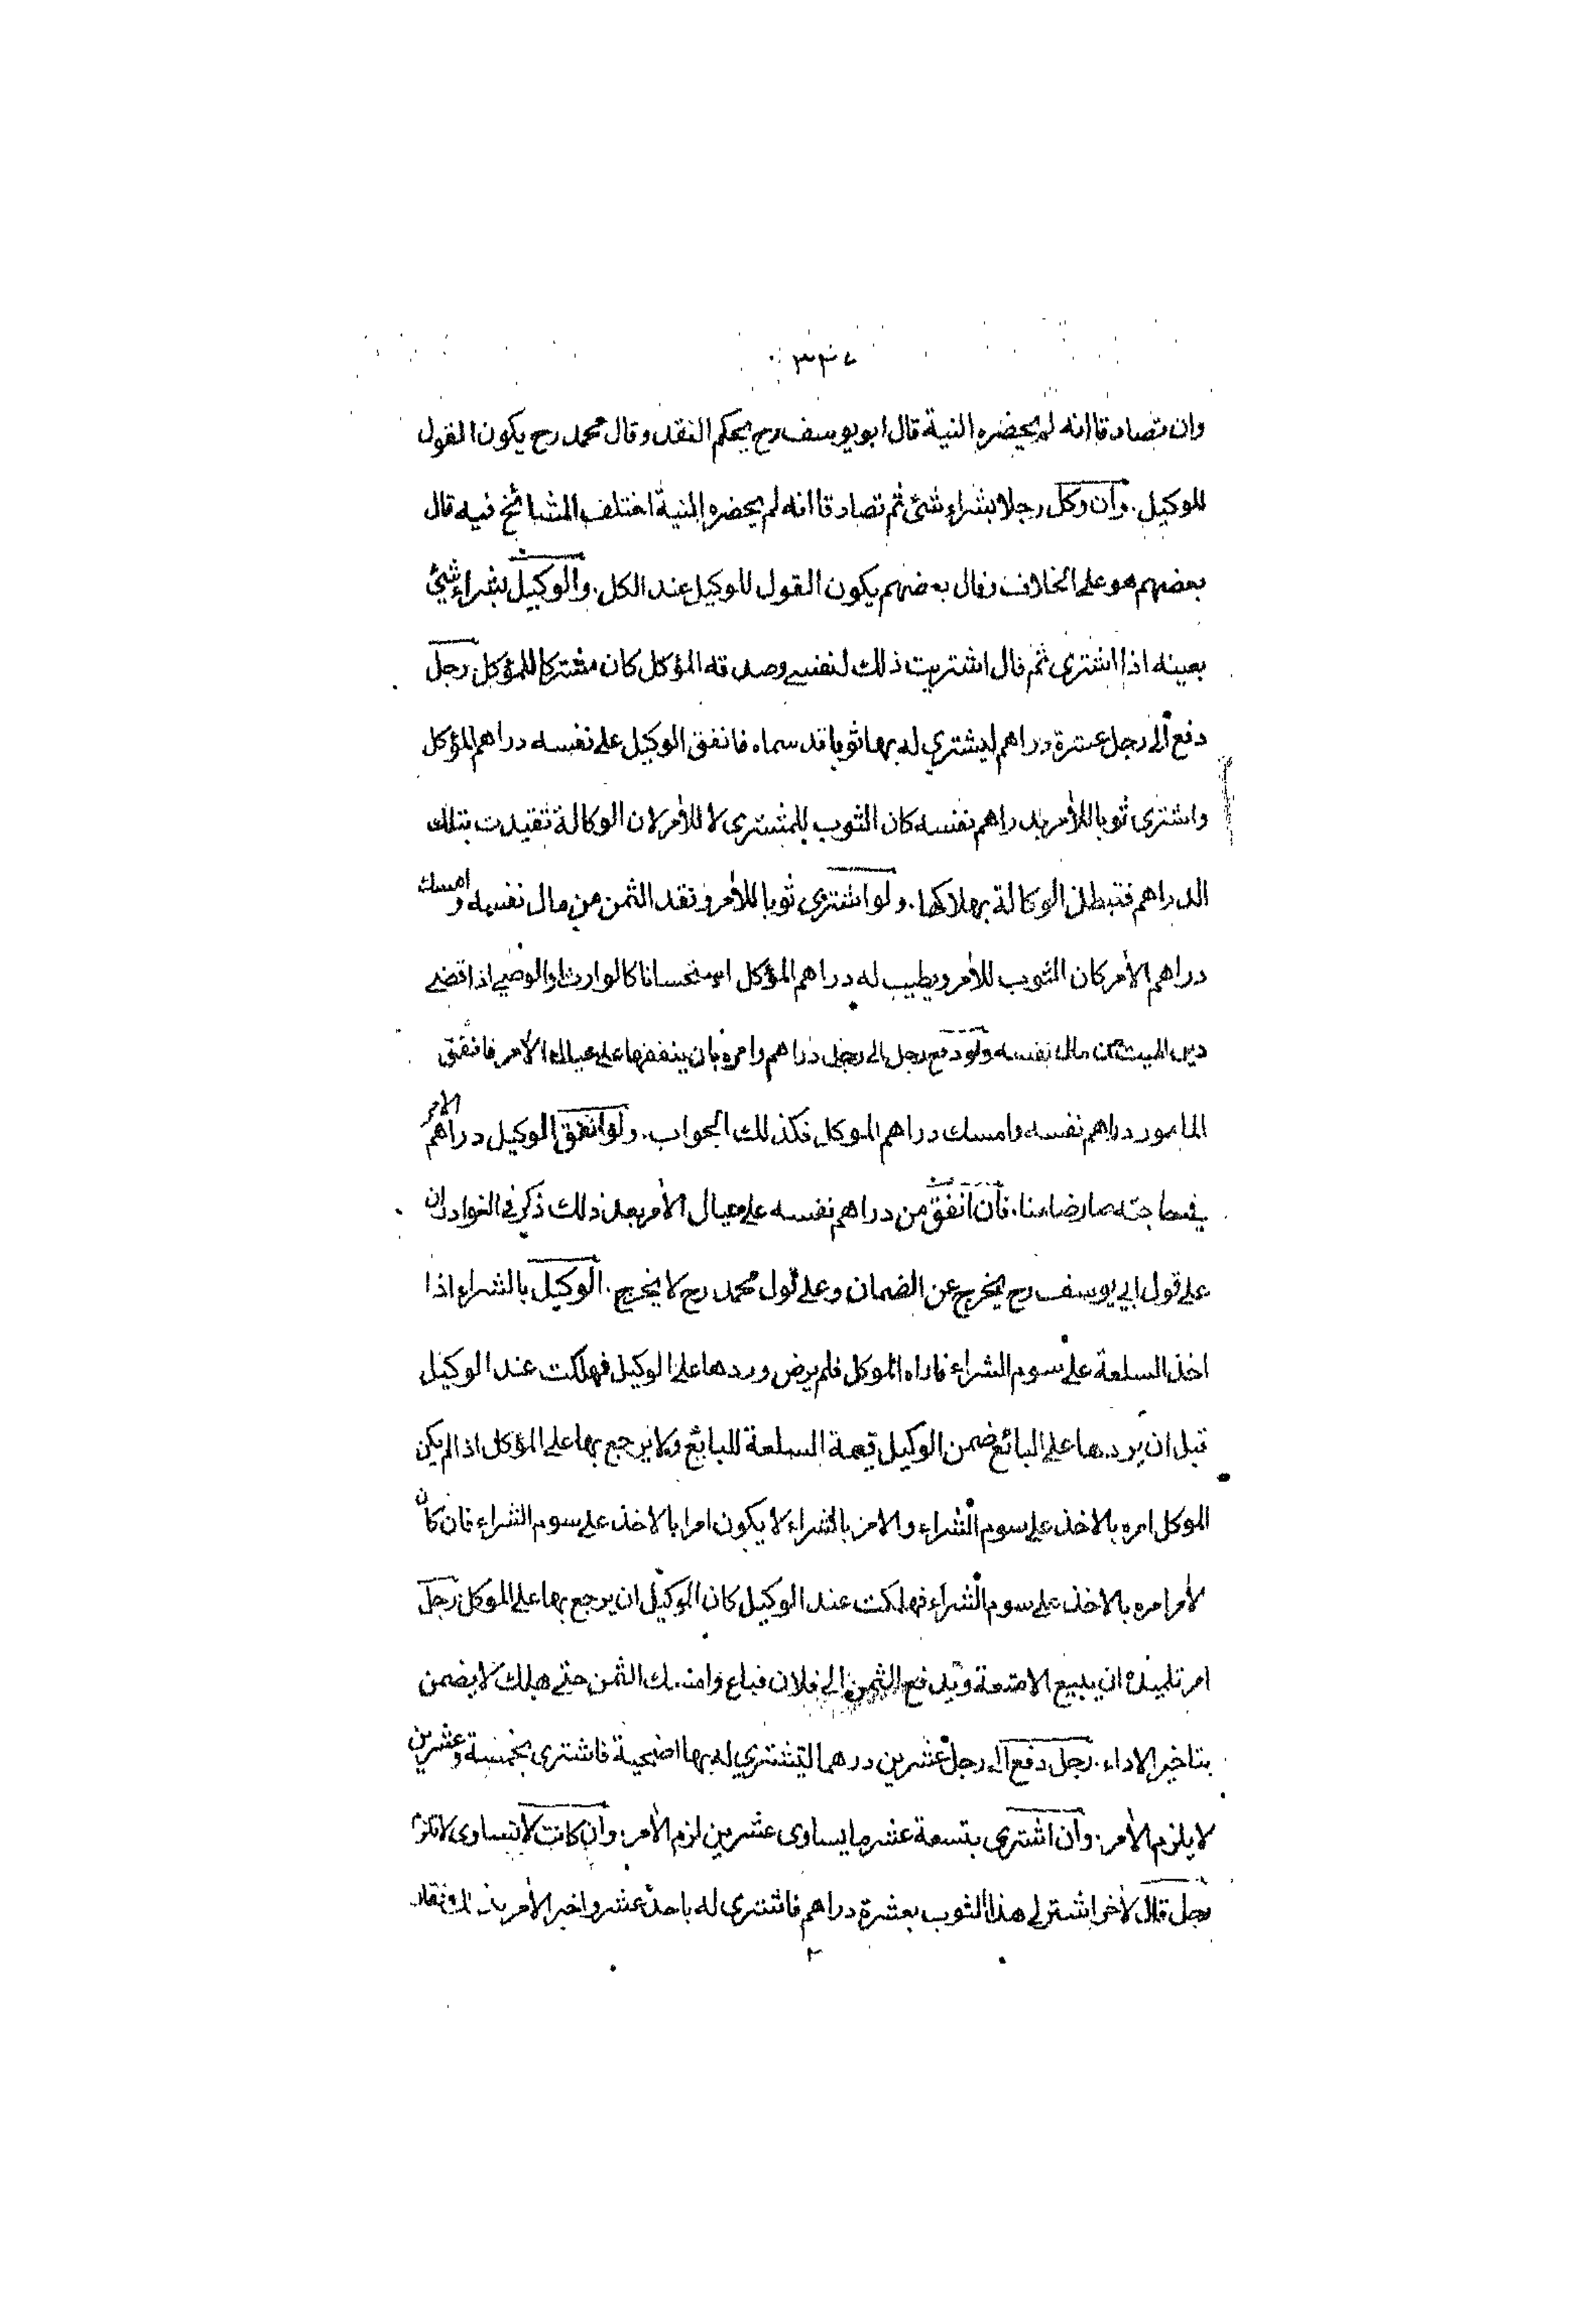 ٣٣٧
وان تصادقا انه لم يحضره النية قال ابو يوسف رح يحكم النقد وقال محمد رح يكون القول
للوكيل. وان وكل رجلا بشراء شئ ثم تصادقا انه لم يحضره النية اختلف المشائخ فيه قال
بعضهم هو على الخلاف وقال بعضهم يكون القول للوكيل عند الكل. والوكيل بشراء شيئ
بعينه اذا اشترى ثم قال اشتريت ذلك لنفسي وصدقه المؤكل كان مشتريا للمؤكل. رجل
دفع الى رجل عشرة دراهم ليشتري له بها ثوبا قد سماه فانفق الوكيل على نفسه دراهم المؤكل
واشترى ثوبا للأمر بدراهم نفسه كان الثوب للمشترى لا للأمر لان الوكالة تقيدت بتلك
الدراهم فتبطل الوكالة بهلاكها. ولو اشترى ثوبا للأمر ونقد الثمن من مال نفسه وامسك
دراهم الأمر كان الثوب للأمر ويطيب له دراهم المؤكل استحسانا كالوارث والوصي اذا قضى
دين الميت من مال نفسه ولو دفع رجل الى رجل دراهم وامره بان ينفقها على عيال الأمر فانفق
المامور دراهم نفسه وامسك دراهم الموكل فكذلك الجواب. ولو انفق الوكيل دراهم الأمر
في حاجته صار ضامنا. فان انفق من دراهم نفسه على عيال الأمر بعد ذلك ذكر في النوادر ان
على قول ابي يوسف رح يخرج عن الضمان وعلى قول محمد رح لا يخرج. الوكيل بالشراء اذا
اخذ السلعة على سوم الشراء فاراه الموكل فلم يرض وردها على الوكيل فهلكت عند الوكيل
قبل ان يردها على البائع ضمن الوكيل قيمة السلعة للبايع ولا يرجع بها على المؤكل اذا لم يكن
الموكل امره بالاخذ على سوم الشراء والامر بالشراء لا يكون امرا بالاخذ على سوم الشراء فان كان
لأمر امره بالاخذ على سوم الشراء فهلكت عند الوكيل كان الوكيل ان يرجع بها على الموكل رجل
امر تلميذه ان يبيع الامتعة ويدفع الثمن الى فلان فباع وامسك الثمن حتى هلك لا يضمن
بتاخير الاداء. رجل دفع الى رجل عشرين درهما ليشتري له بها اضحية فاشترى بخمسة وعشرين
لا يلزم الأمر. وان اشترى بتسعة عشر ما يساوى عشرين لزم الأمر. وان كانت لا تساوى لا تلزم
رجل قال لأخر اشتر لي هذا الثوب بعشرة دراهم فاشترى له باحد عشر واخبر الأمر